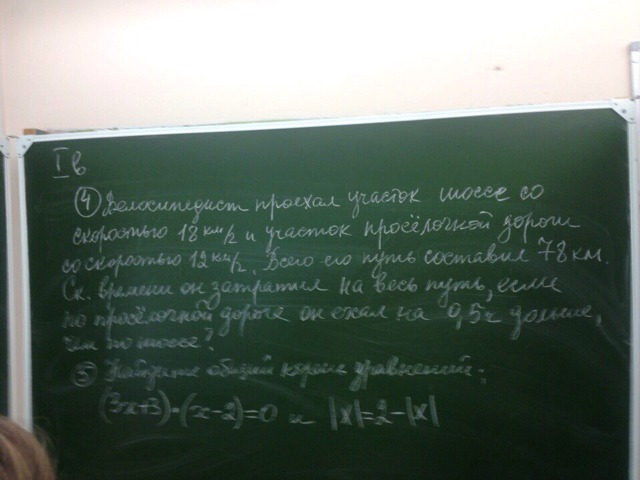 I в
④ Велосипедист проехал участок шоссе со
скоростью 18 км/ч и участок просёлочной дороги
со скоростью 12 км/ч. Всего его путь составил 78 км.
Ск. времени он затратил на весь путь, если
по просёлочной дороге он ехал на 0,5 ч дольше,
чем по шоссе?
⑤ Найдите общий корень уравнений:
(3x+3)·(x-2)=0 и |x|=2-|x|